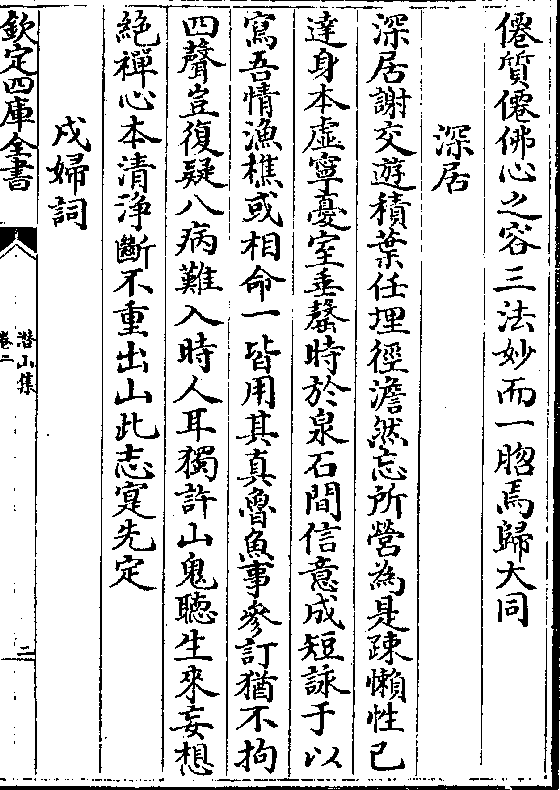 僊質僊佛心之容三法妙而一脗焉歸大同
深居
深居謝交遊積葉任埋徑澹然忘所營為是踈懶性已
達身本虛寧憂室垂罄時於泉石間信意成短詠于以
寫吾情漁樵或相命一皆用其真魯魚事參訂猶不拘
四聲豈復疑八病難入時人耳獨許山鬼聽生來妄想
絕禪心本清淨斷不重出山此志寔先定
戍婦詞
欽定四庫全書
潛山集
卷二
二